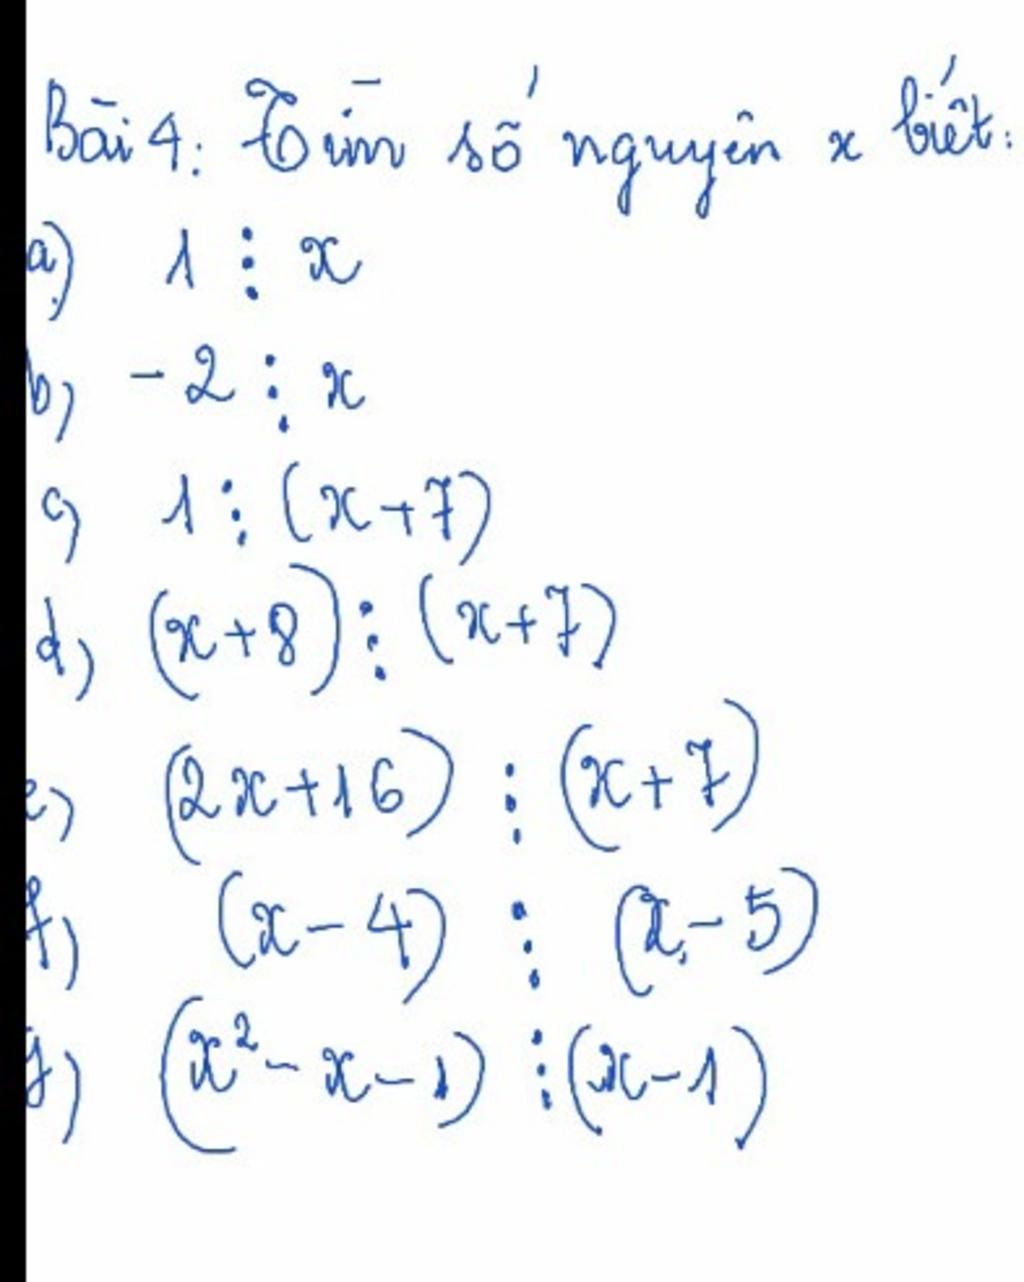 Bài 4: Tìm số nguyên x biết:
a) 1 ⋮ x
b) -2 ⋮ x
c) 1 ⋮ (x+7)
d) (x+8) ⋮ (x+7)
e) (2x+16) ⋮ (x+7)
f) (x-4) ⋮ (x-5)
g) (x²-x-1) ⋮ (x-1)